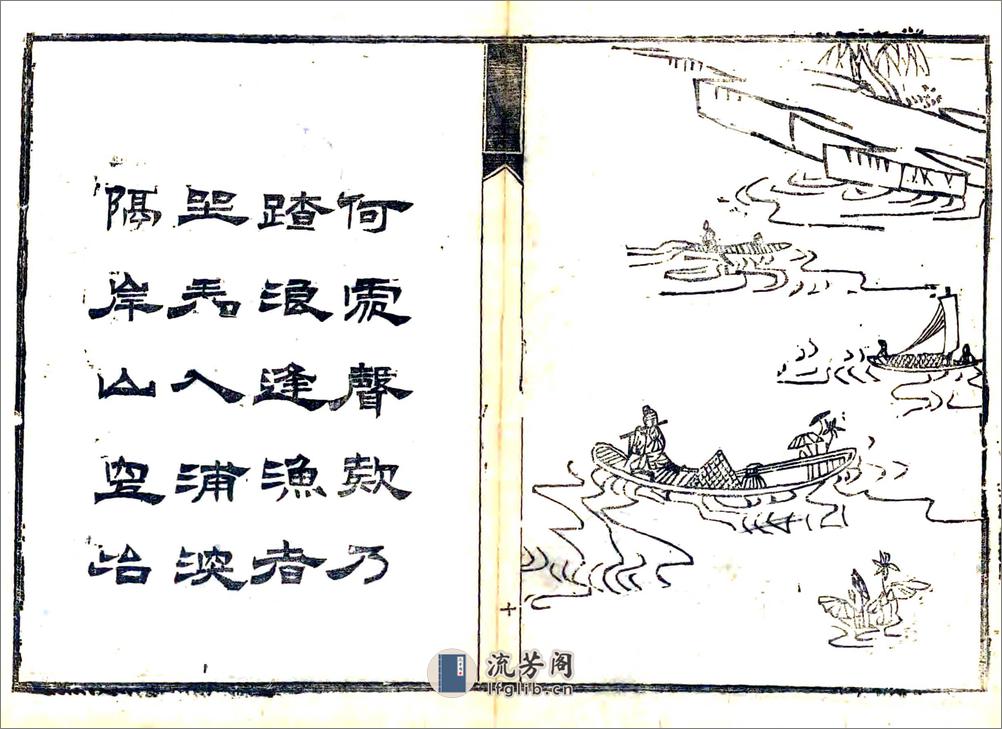 何處聲欸乃
踏浪逢漁者
入浦深
隔岸山空冶
十
流芳阁
lfglib.cn